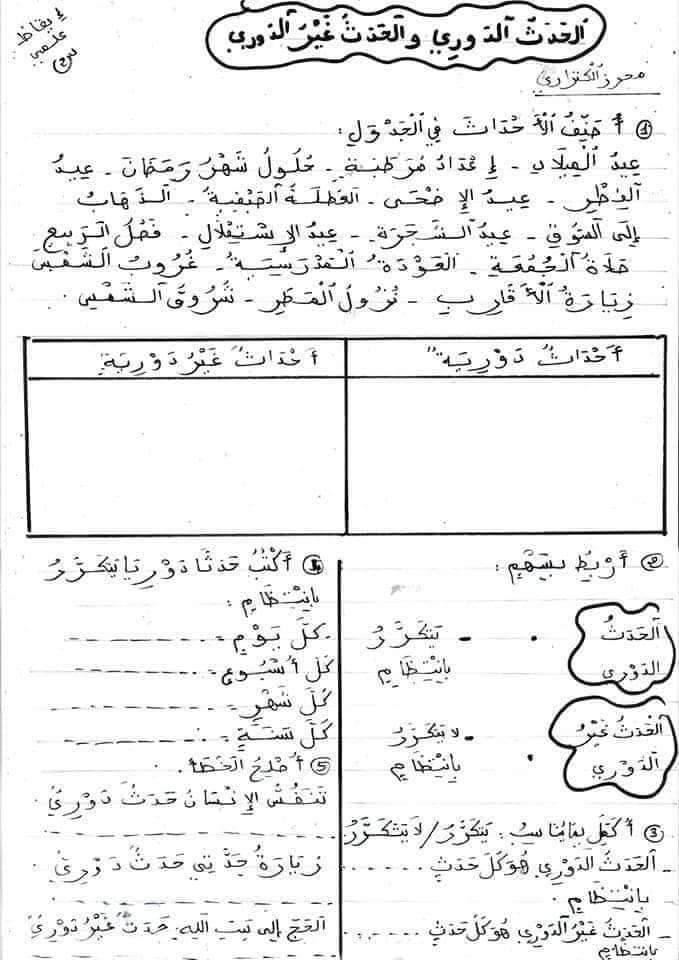 إيقاظ
علمي
س2
الحَدَثُ الدَّوْرِي وَالحَدَثُ غَيْرُ الدَّوْرِي
محرز الكنزاري
① أُصَنِّفُ الأَحْدَاثَ فِي الجَدْوَلِ :
عِيدُ المِيلَادِ - إِعْدَادُ مُرَطِّبَةٍ - حُلُولُ شَهْرِ رَمَضَانَ - عِيدُ
الفِطْرِ - عِيدُ الإِضْحَى - العُطْلَةُ الصَّيْفِيَّةُ - الذَّهَابُ
إِلَى السُّوقِ - عِيدُ الشَّجَرَةِ - عِيدُ الاِسْتِقْلَالِ - فَصْلُ الرَّبِيعِ
صَلَاةُ الجُمُعَةِ - العَوْدَةُ المَدْرَسِيَّةُ - غُرُوبُ الشَّمْسِ
زِيَارَةُ الأَقَارِبِ - نُزُولُ المَطَرِ - شُرُوقُ الشَّمْسِ .
أَحْدَاثٌ دَوْرِيَّةٌ
أَحْدَاثٌ غَيْرُ دَوْرِيَّةٍ
② أَرْبِطُ بِسَهْمٍ :
الحَدَثُ
الدَّوْرِي
يَتَكَرَّرُ
بِانْتِظَامٍ
الحَدَثُ غَيْرُ
الدَّوْرِي
لَا يَتَكَرَّرُ
بِانْتِظَامٍ
③ أُكْمِلُ بِمَا يُنَاسِبُ : يَتَكَرَّرُ / لَا يَتَكَرَّرُ
- الحَدَثُ الدَّوْرِي هُوَ كُلُّ حَدَثٍ . . . . . .
بِانْتِظَامٍ .
- الحَدَثُ غَيْرُ الدَّوْرِي هُوَ كُلُّ حَدَثٍ . . . . . .
بِانْتِظَامٍ
④ أَكْتُبُ حَدَثًا دَوْرِيًّا يَتَكَرَّرُ
بِانْتِظَامٍ :
كُلَّ يَوْمٍ : - - - - - - - -
كُلَّ أُسْبُوعٍ : - - - - - - - -
كُلَّ شَهْرٍ : - - - - - - - -
كُلَّ سَنَةٍ : - - - - - - - -
⑤ أُصْلِحُ الخَطَأَ .
تَنَفُّسُ الإِنْسَانِ حَدَثٌ دَوْرِيٌّ
زِيَارَةُ جَدَّتِي حَدَثٌ دَوْرِيٌّ .
الحَجُّ إِلَى بَيْتِ اللهِ حَدَثٌ غَيْرُ دَوْرِيٍّ